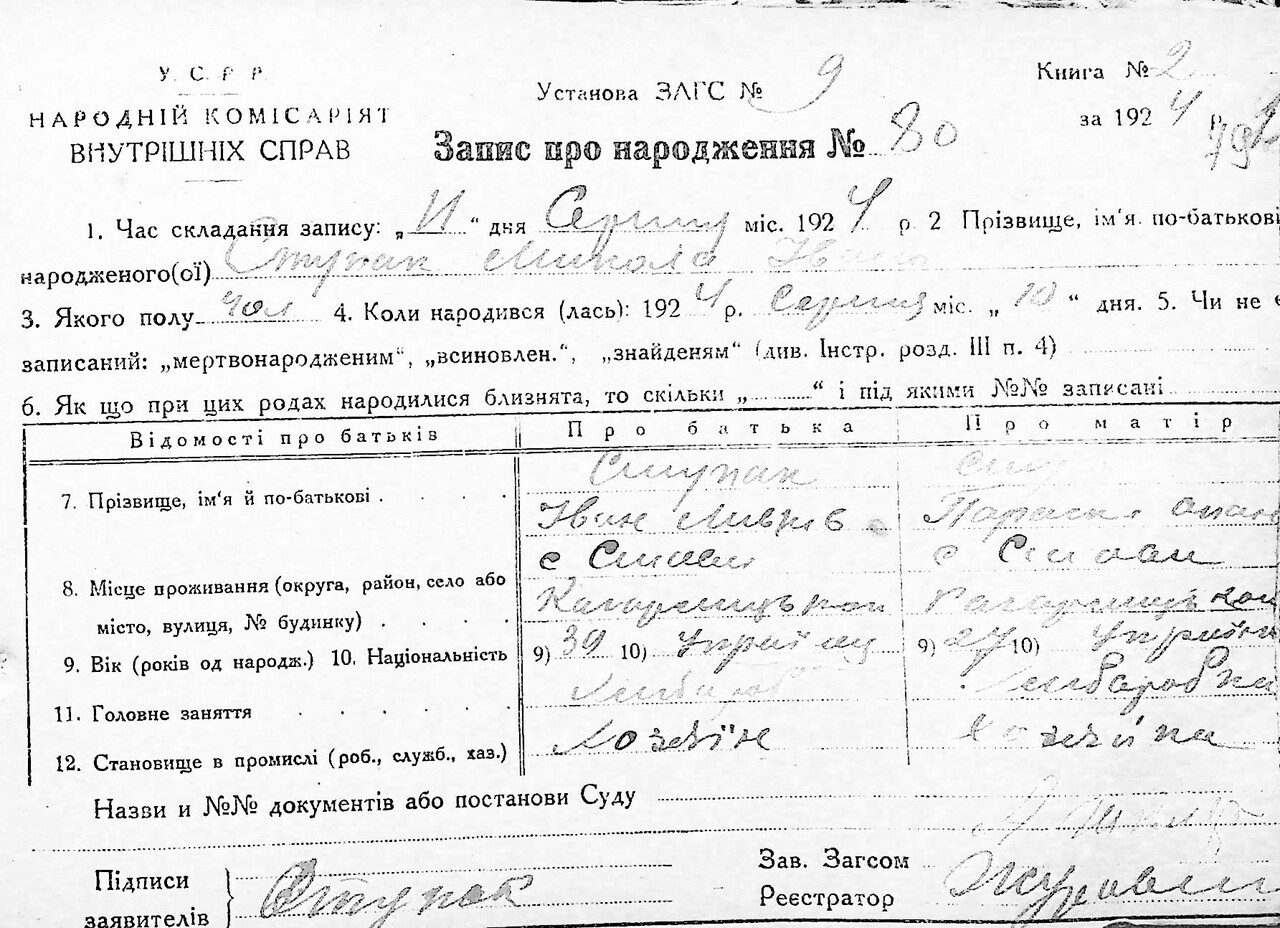 У. С. Р. Р.
НАРОДНІЙ КОМІСАРІЯТ
ВНУТРІШНІХ СПРАВ
Установа ЗАГС № 9
Книга № 2
за 1924 р.
Запис про народження № 80
1. Час складання запису: „11“ дня Серпня міс. 1924 р. 2 Прізвище, ім‘я. по-батькові
народженого(ої) Ступак Микола Іван
3. Якого полу чол 4. Коли народився (лась): 1924 р. Серпня міс. „10“ дня. 5. Чи не є
записаний: „мертвонародженим“, „всиновлен.“, „знайденям“ (див. Інстр. розд. III п. 4)
6. Як що при цих родах народилися близнята, то скільки „ “ і під якими №№ записані
Відомості про батьків Про батька Про матір
7. Прізвище, ім‘я й по-батькові . . . . Ступак
Іван
8. Місце проживання (округа, район, село або
місто, вулиця, № будинку) . . . .
9. Вік (років од народж.) 10. Національність 9) 39 10) 9) 27 10)
11. Головне заняття . . . . . Хлібороб Хліборобка
12. Становище в промислі (роб., служб., хаз.) Хозяїн
Назви и №№ документів або постанови Суду
Підписи
заявителів
Ступак
Зав. Загсом
Реєстратор